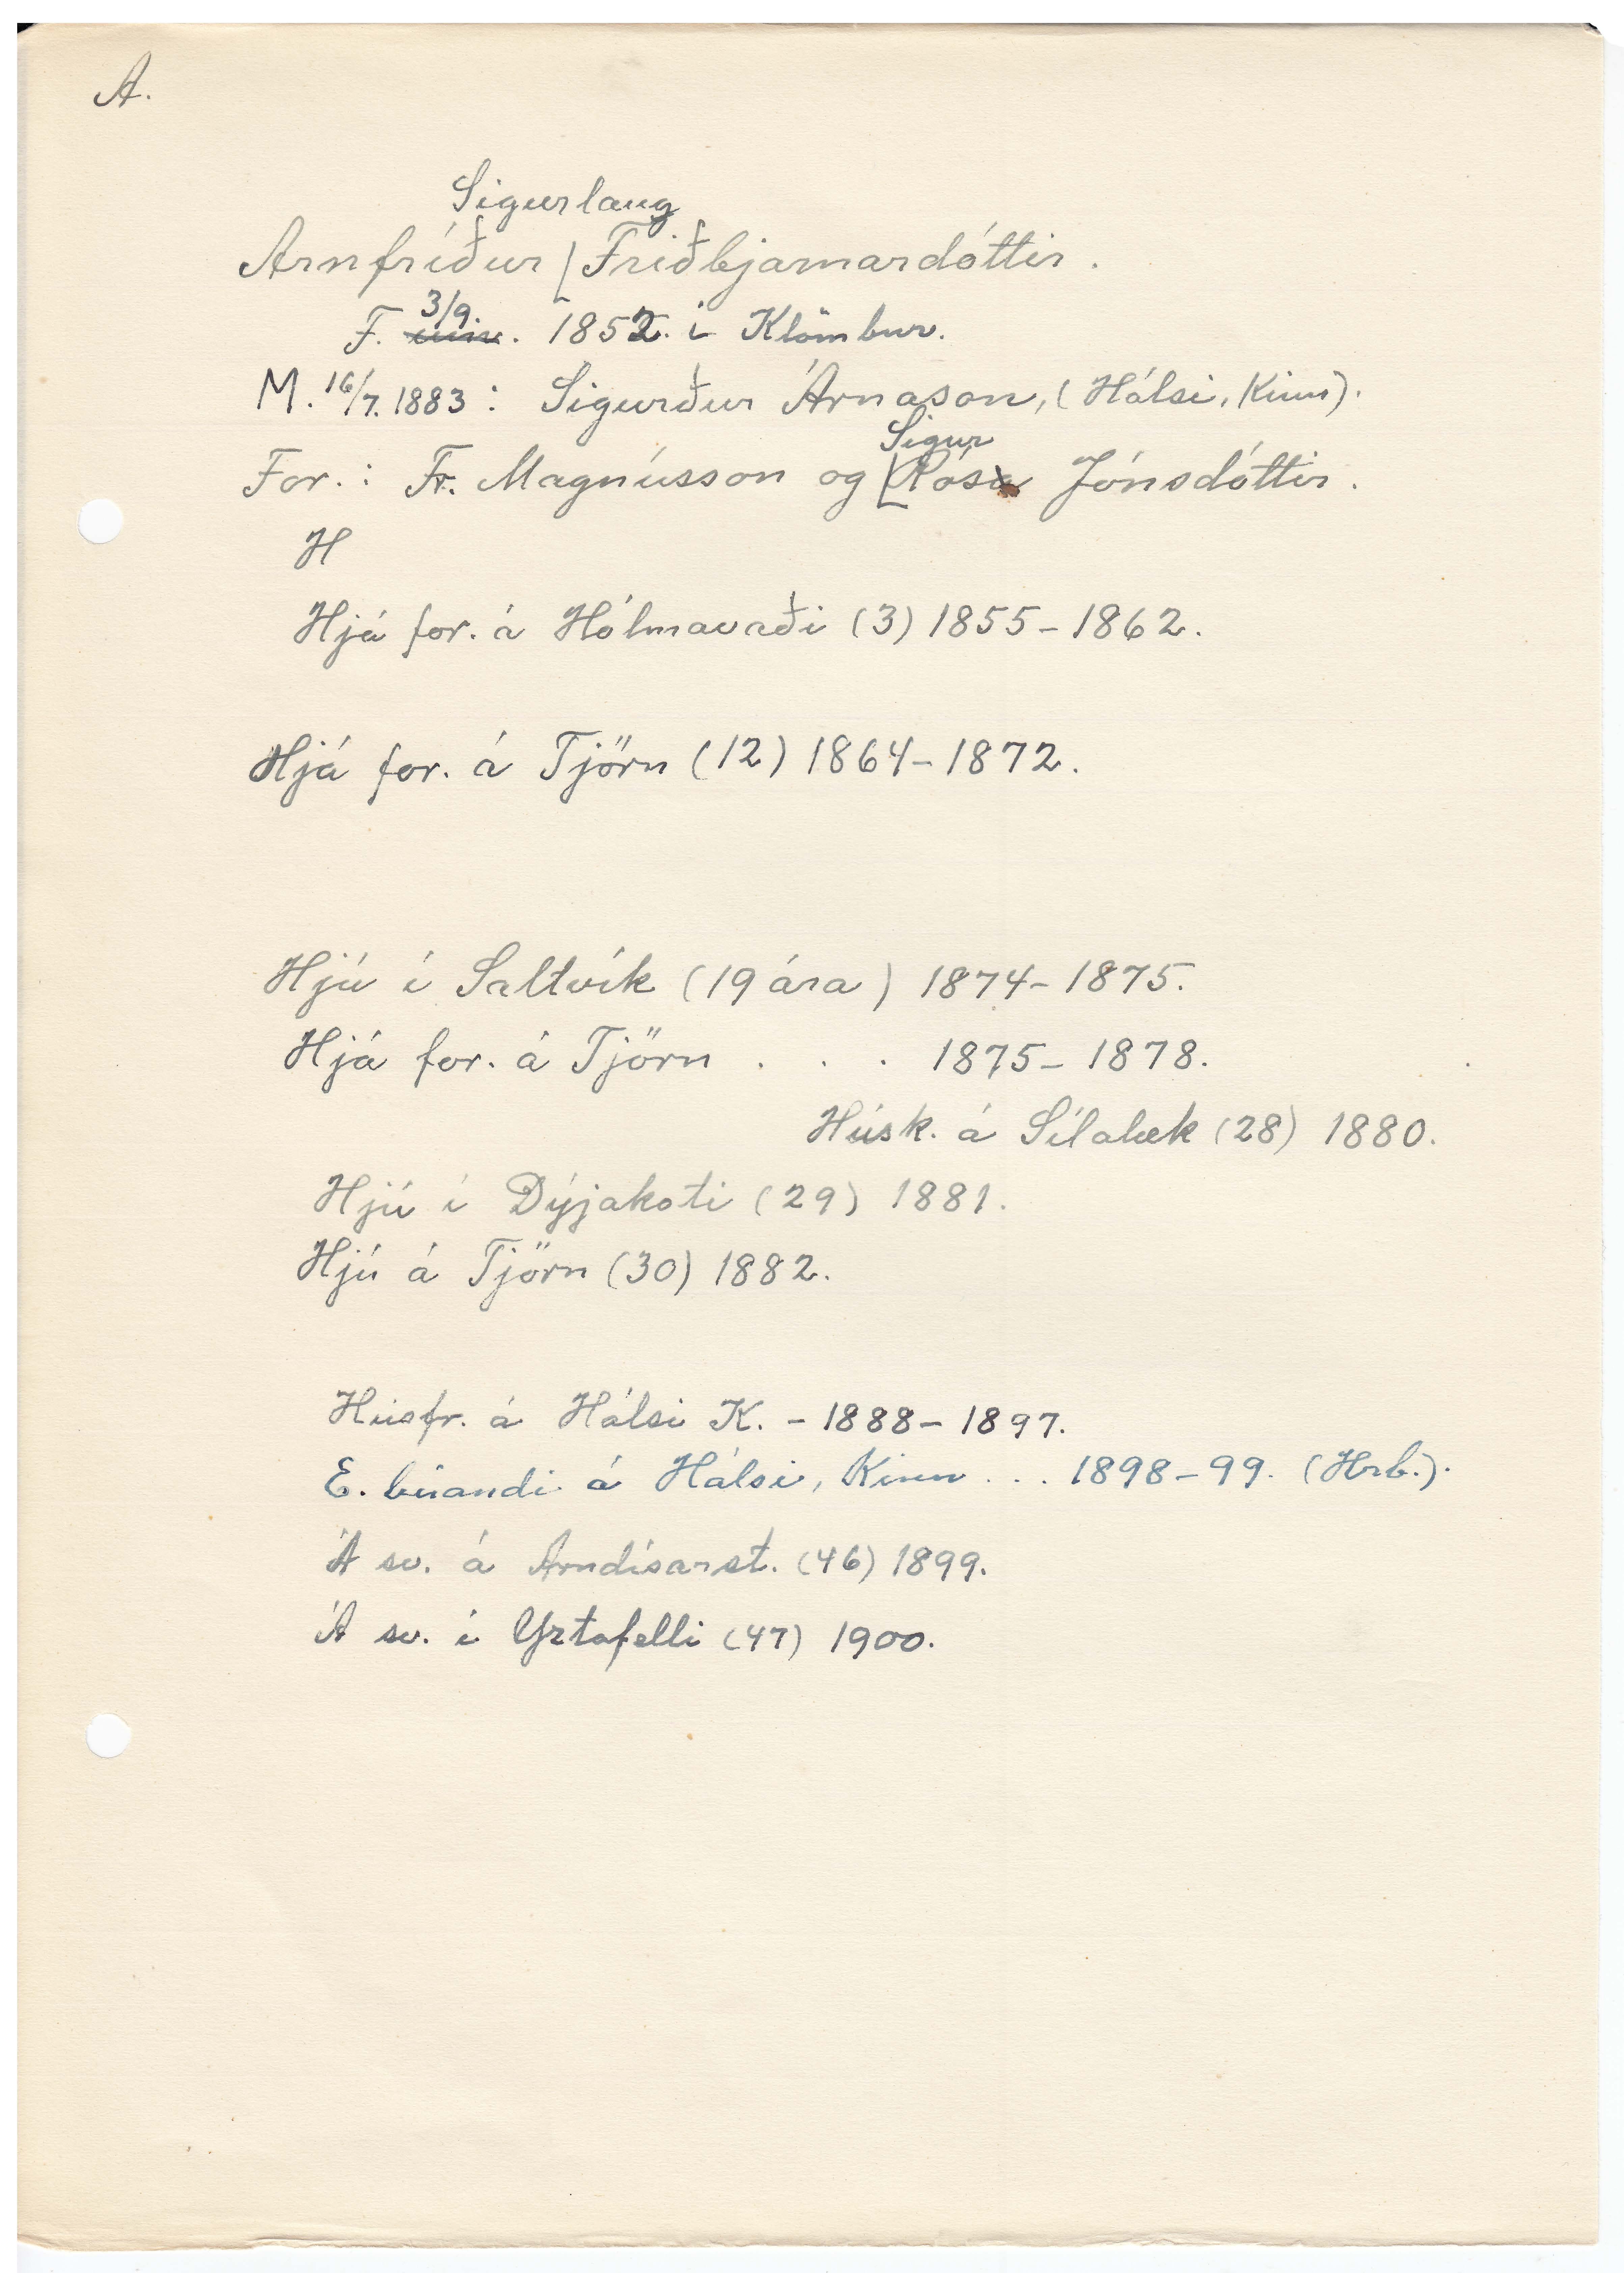 A.
Sigurlaug
Arnfríður ⌊Friðbjarnardóttir.
3/9.
F. um. 1852. í Klömbur.
M. 16/7. 1883: Sigurður Árnason, (Hálsi, Kinn).
Sigur
For.: Fr. Magnússon og ⌊Rósa Jónsdóttir.
H
Hjá for. á Hólmavaði (3) 1855-1862.
Hjá for. á Tjörn (12) 1864-1872.
Hjú í Saltvík (19 ára) 1874-1875.
Hjá for. á Tjörn . . . 1875-1878.
Húsk. á Sílalæk (28) 1880.
Hjú í Dýjakoti (29) 1881.
Hjú á Tjörn (30) 1882.
Húsfr. á Hálsi K. - 1888-1897.
E. búandi á Hálsi, Kinn . . . 1898-99. (Hrb.).
Á sv. á Arndísarst. (46) 1899.
Á sv. í Yztafelli (47) 1900.